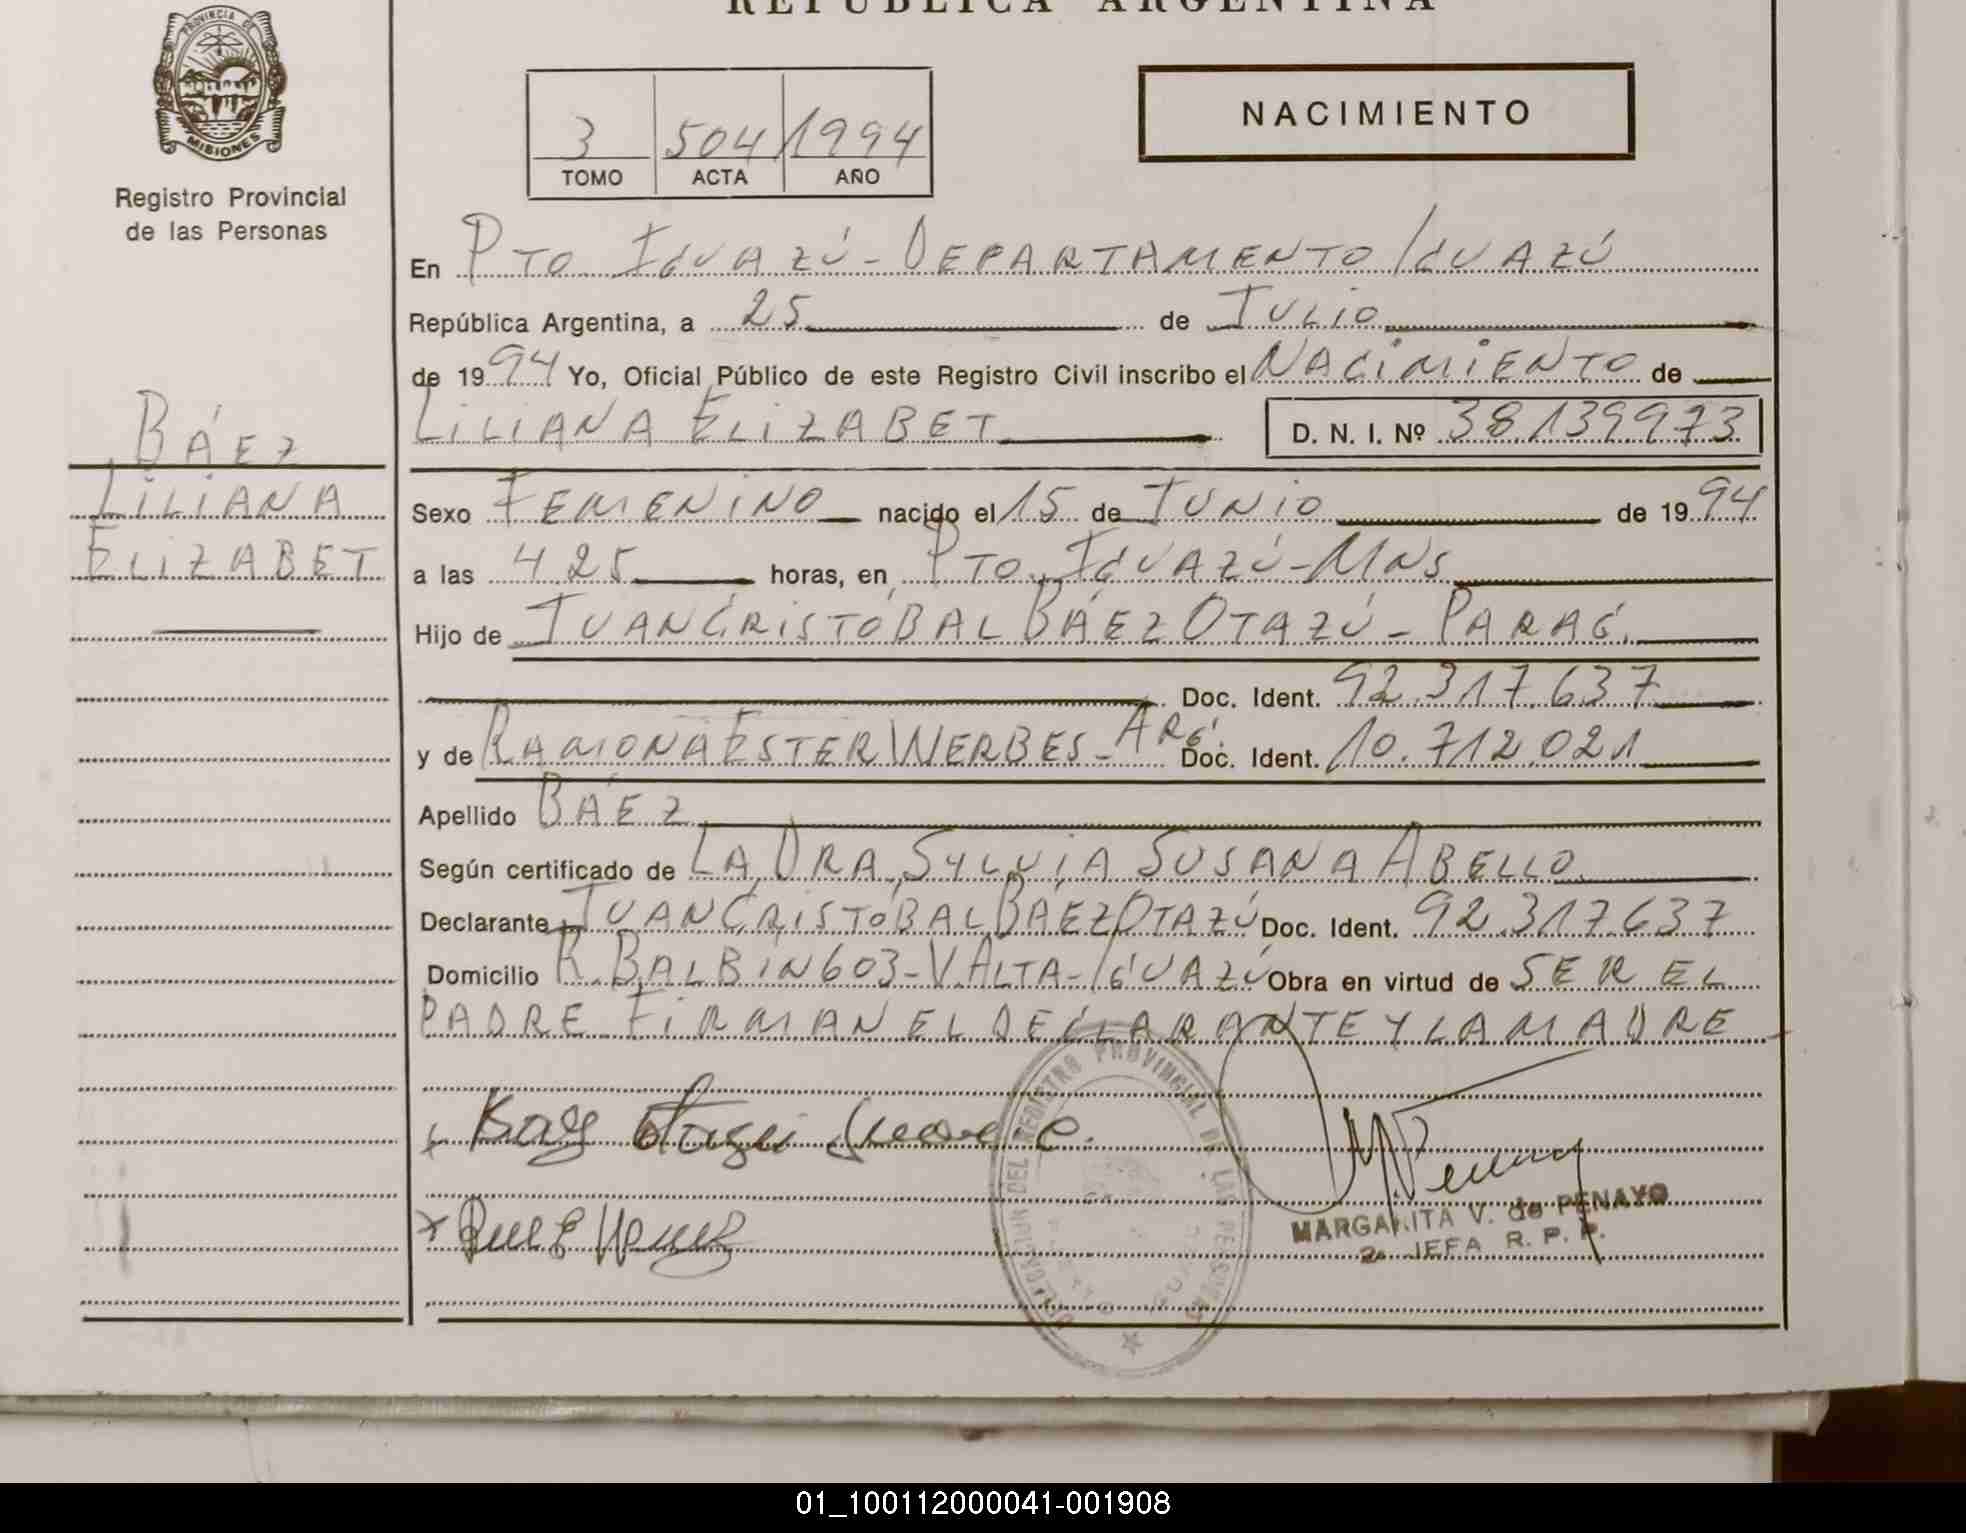 REPUBLICA ARGENTINA
PROVINCIA DE
MISIONES
Registro Provincial
de las Personas
3 504 1994
TOMO ACTA AÑO
NACIMIENTO
En PTO IGUAZÚ - DEPARTAMENTO IGUAZÚ
República Argentina, a 25 de JULIO
de 1994 Yo, Oficial Público de este Registro Civil inscribo el NACIMIENTO de
LILIANA ELIZABET D. N. I. Nº 38.139.973
BÁEZ
LILIANA
ELIZABET
Sexo FEMENINO nacido el 15 de JUNIO de 1994
a las 4.25 horas, en PTO. IGUAZÚ - MNS
Hijo de JUAN CRISTÓBAL BÁEZ OTAZÚ - PARAG.
Doc. Ident. 92.317.637
y de RAMONA ESTER WERBES - ARG. Doc. Ident. 10.712.021
Apellido BÁEZ
Según certificado de LA DRA. SYLVIA SUSANA ABELLO
Declarante JUAN CRISTÓBAL BÁEZ OTAZÚ Doc. Ident. 92.317.637
Domicilio R. BALBIN 603 - V. ALTA - IGUAZÚ Obra en virtud de SER EL
PADRE FIRMAN EL DECLARANTE Y LA MADRE
DEL REGISTRO PROVINCIAL DE LAS PERSONAS
MARGARITA V. de PENAYO
2a JEFA R. P. P.
01_100112000041-001908